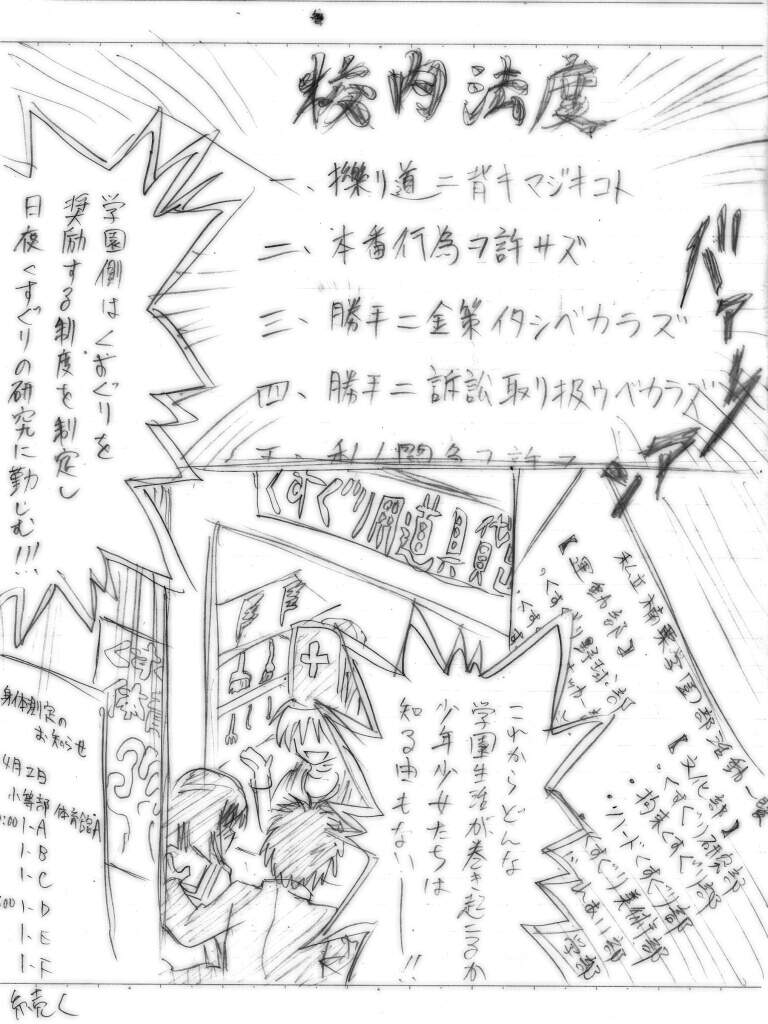 校内法度
一、擽り道ニ背キマジキコト
二、本番行為ヲ許サズ
三、勝手ニ金策イタシベカラズ
四、勝手ニ訴訟取り扱ウベカラズ
バァァーン
学園側はくすぐりを
奨励する制度を制定し
日夜くすぐりの研究に勤しむ!!!
くすぐり用道具
私立楠栗学園部活動一覧
【運動部】
・くすぐり野球部
【文化部】
・くすぐり研究部
・拘束くすぐり部
・ソードくすぐり部
くすぐり美術部
これからどんな
学園生活が巻き起こるか
少年少女たちは
知る由もない――!!
くす
体育
身体測定の
お知らせ
4月2日
小等部 体育館A
1-A
1-B
1-C
1-D
1-E
1-F
続く